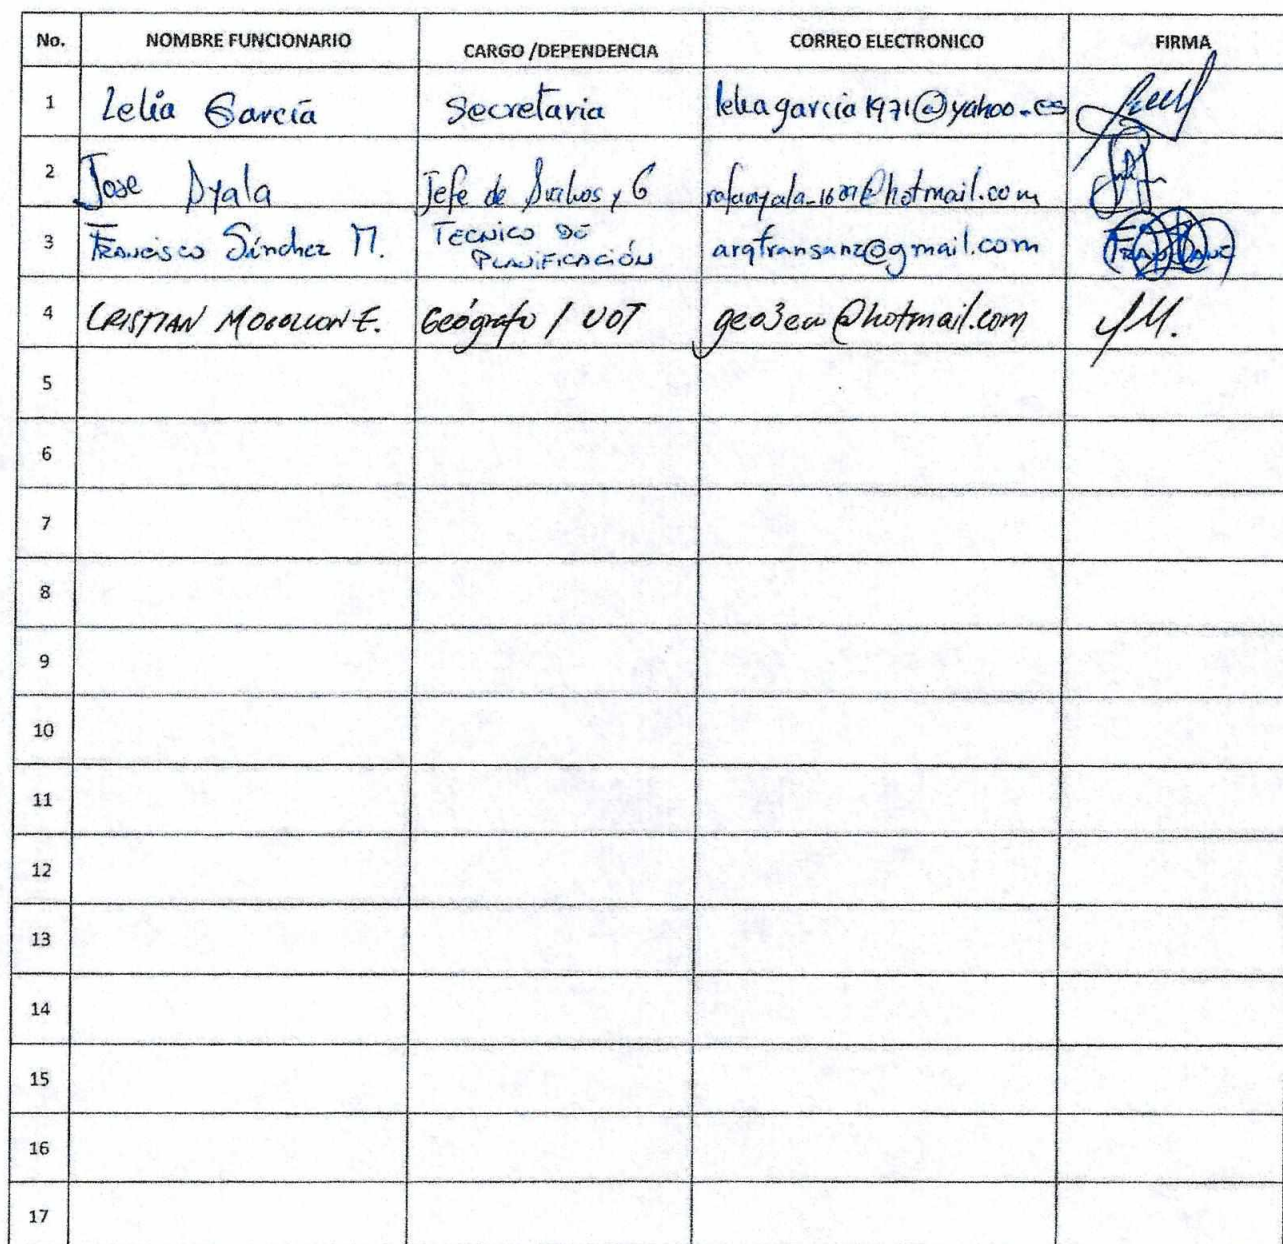 No. NOMBRE FUNCIONARIO CARGO /DEPENDENCIA CORREO ELECTRONICO FIRMA
1 Lelia García Secretaria leliagarcia1971@yahoo.es
2 Jose Ayala Jefe de y G
3 Francisco Sánchez M. TECNICO DE PLANIFICACIÓN arqfransanz@gmail.com
4 CRISTIAN MOGOLLON E. Geógrafo / UOT geo3ecu@hotmail.com
5
6
7
8
9
10
11
12
13
14
15
16
17